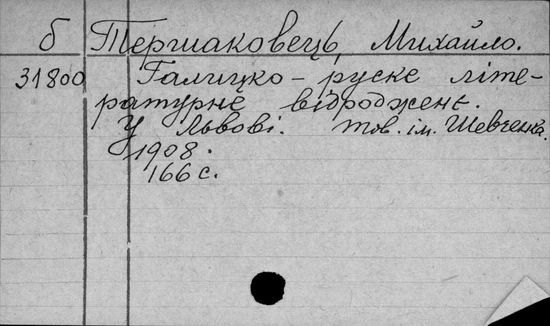 б Тершаковець, Михайло.
31800 Галицко-руске літе-
ратурне відродженє.
У Львові. тов. ім. Шевченка.
1908.
166 с.